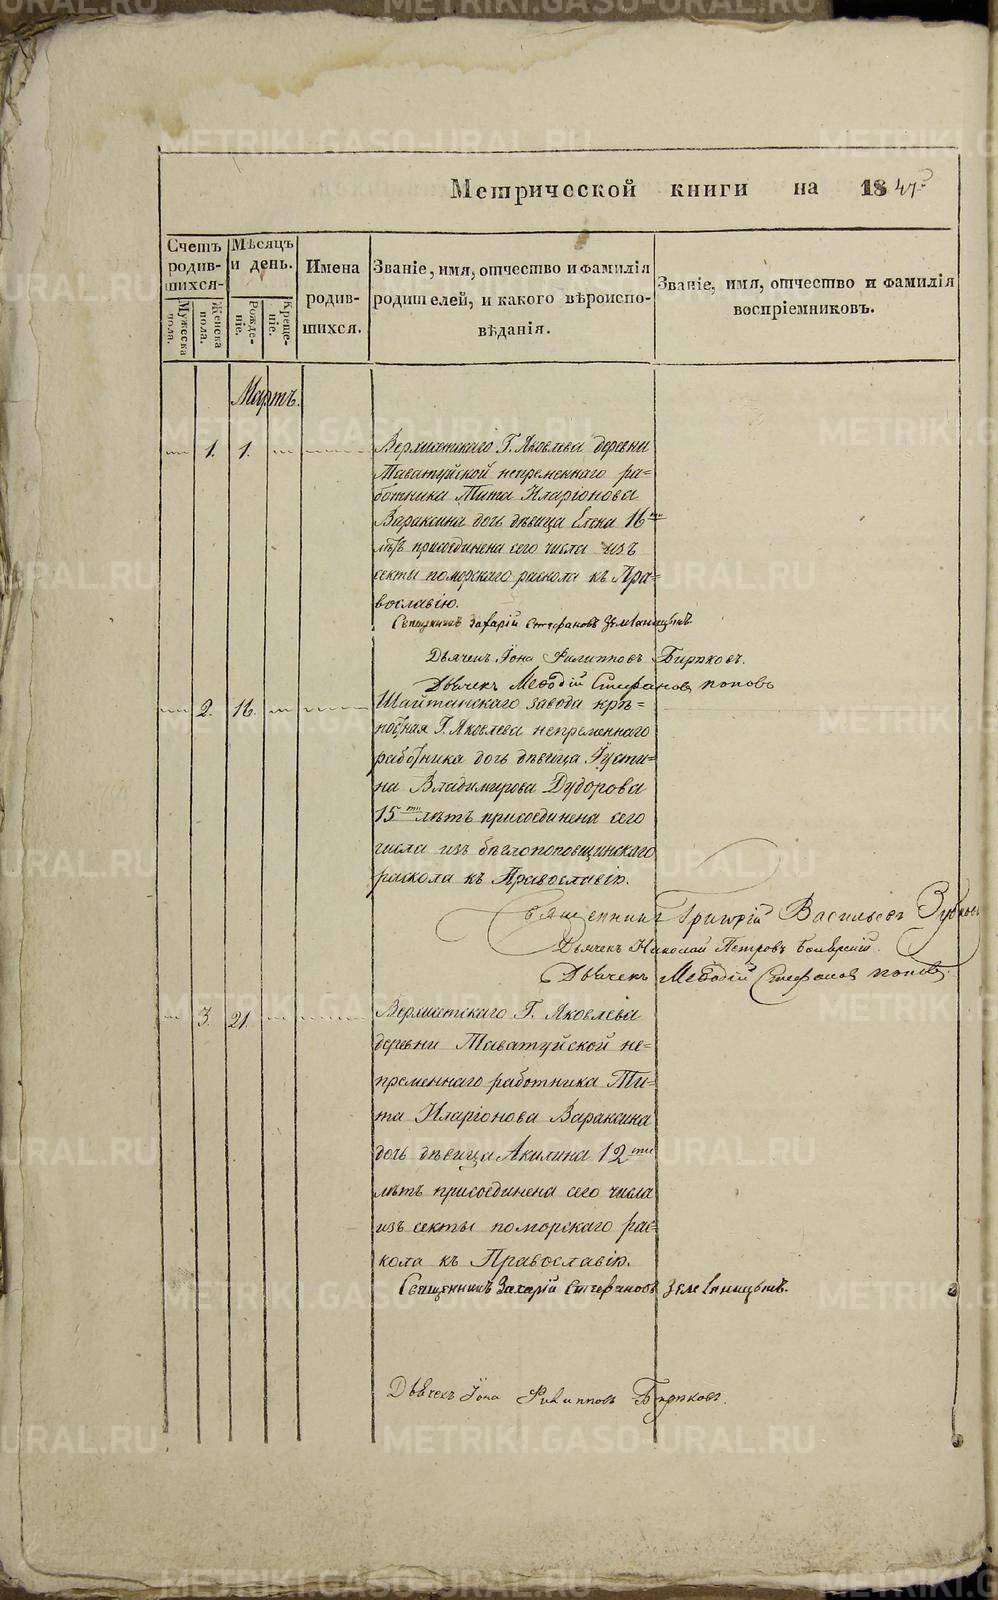 Метрической книги на 1847
Счетъ родив-шихся
Мужеска пола.
Женска пола.
Мѣсяцъ и день.
Рожде-ніе.
Креще-ніе.
Имена родив-шихся.
Званіе, имя, отчество и фамилія
родителей, и какого вѣроиспо-
вѣданія.
Званіе, имя, отчество и фамилія
воспріемниковъ.
Мартъ.
1. 1. Г. Яковлева деревни
Таватуйской непременнаго ра-
ботника Тита Иларіонова
Вараксина дочь дѣвица Елена 16ти
лѣтъ присоединена сего числа изъ
секты поморскаго раскола къ Пра-
вославію.
Священникъ Захарій Стефановъ
Дьячекъ Іона Филипповъ Бирюковъ.
Дьячекъ Меѳодій Стефановъ Поповъ
2. 16. Шайтанскаго завода крѣ-
постная Г. Яковлева непременнаго
работника дочь дѣвица Іусти-
на Владимирова Дудорова
15ти лѣтъ присоединена сего
числа изъ бѣглопоповщинскаго
раскола къ Православію.
Священникъ Григорій Васильевъ
Дьячекъ Николай Петровъ
Дьячекъ Меѳодій Стефановъ Поповъ.
3. 21. Г. Яковлева
деревни Таватуйской не-
пременнаго работника Ти-
та Иларіонова Вараксина
дочь дѣвица Акилина 12ти
лѣтъ присоединена сего числа
изъ секты поморскаго рас-
кола къ Православію.
Священникъ Захарій Стефановъ
Дьячекъ Іона Филипповъ Бирюковъ.
METRIKI.GASO-URAL.RU